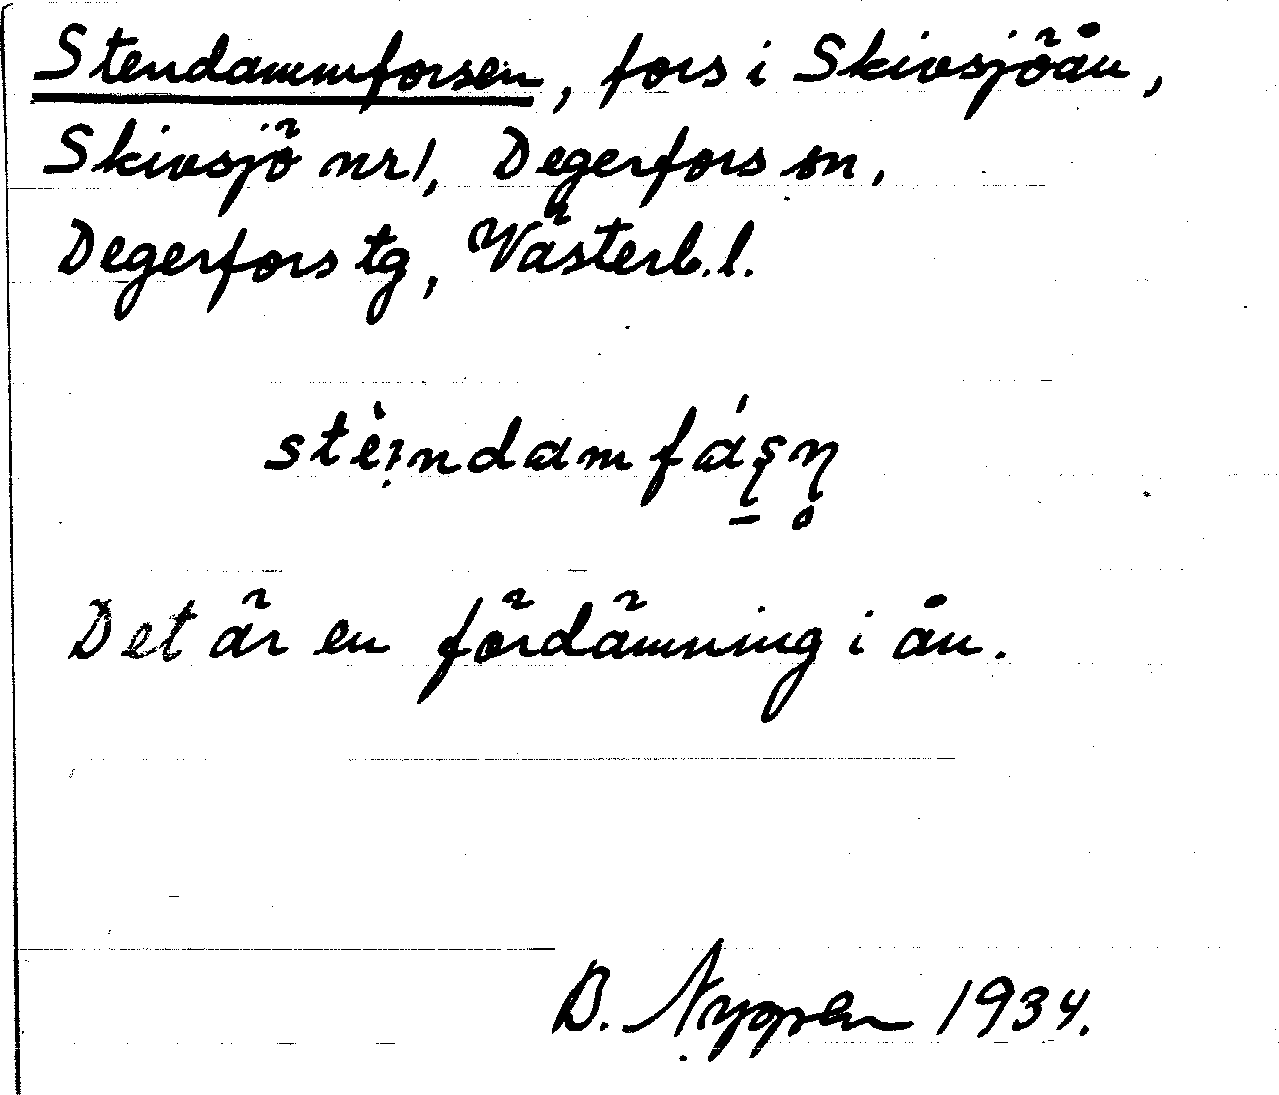 Stendammforsen, fors i Skivsjöån,
Skivsjö nr 1, Degerfors sn,
Degerfors tg, Västerb. l.
stèi̯ndamfáʂn̥
Det är en fördämning i ån.
B. 1934.